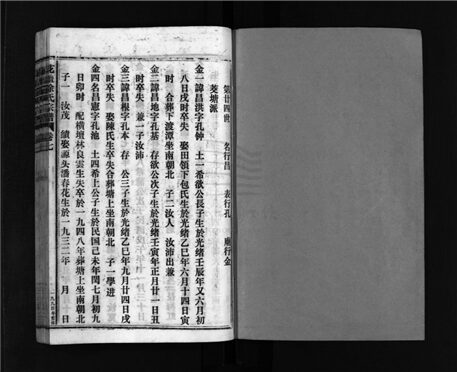 第廿四世 名行昌 表行孔 廟行金
茭塘派
金一諱昌洪字孔钟 土一希欲公長子生於光绪壬辰年又六月初
八日戌時卒失 娶田領下包氏生於光绪乙巳年六月十四日寅
時 合葬下渡潭坐南朝北 子二汝人 汝沛出兼
金二諱昌地字孔基 存欲公次子生於光绪壬寅年正月廿一日丑
時卒失 兼一子汝沛
金三諱昌根字孔本 存 公三子生於光绪乙巳年九月廿四日戌
時卒失 娶陳氏生卒失合葬塘上坐南朝北 子一學进
金四名昌憲字孔池 土四希上公子生於民国己未年閏七月初九
日卯時 配横壇林良雲生失卒於一九四八年葬塘上坐南朝北
子一 汝茂 續娶源头潘春花生於一九三二年 月 日
徐氏宗譜 卷七